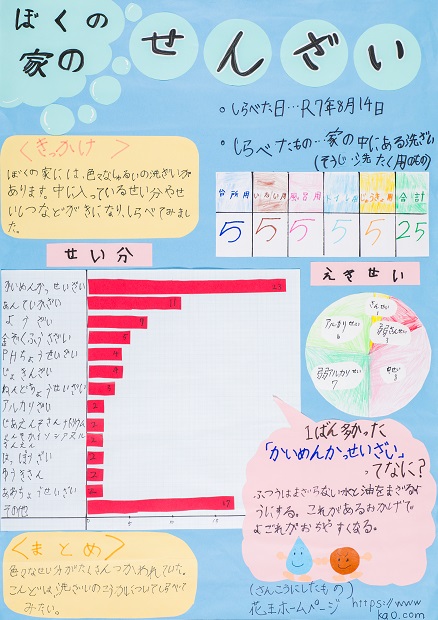 ぼくの
家の
せんざい
・しらべた日…R7年8月14日
・しらべたもの…家の中にある洗ざい
(そうじ・洗たく用のもの)
<きっかけ>
ぼくの家には、色々なしゅるいの洗ざいが
あります。中に入っているせい分やせ
いしつなどが気になり、しらべてみまし
た。
台所用 風呂用 トイレ用 合計
5 5 5 5 5 25
せい分
かいめんかっせいざい 23
あんていかざい 11
ようざい
金ぞくふうざい
PHちょうせいざい
じょきんざい
ねんどちょうせいざい
アルカリざい 2
じあえんそさんナトリウム 2
はっぽうざい 2
ゆうきさん 2
あわちょうせいざい 2
その他 17
0 5 10 15
えきせい
さんせい
弱さんせい
アルカリせい
6
弱アルカリせい
7
中せい
1ばん多かった
「かいめんかっせいざい」
ってなに?
ふつうはまざらない水と油をまざるよ
うにする。これがあるおかげで
よごれがおちやすくなる。
<まとめ>
色々なせい分がたくさんつかわれていた。
こんどは、洗ざいのこうかについてしらべて
みたい。
(さんこうにしたもの)
花王ホームページ https://www
kao.com